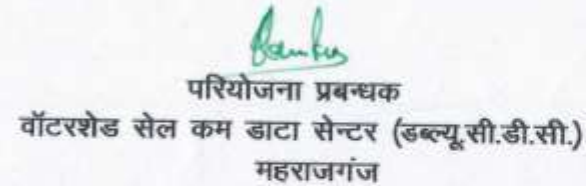 परियोजना प्रबन्धक
वॉटरशेड सेल कम डाटा सेन्टर (डब्ल्यू.सी.डी.सी.)
महराजगंज